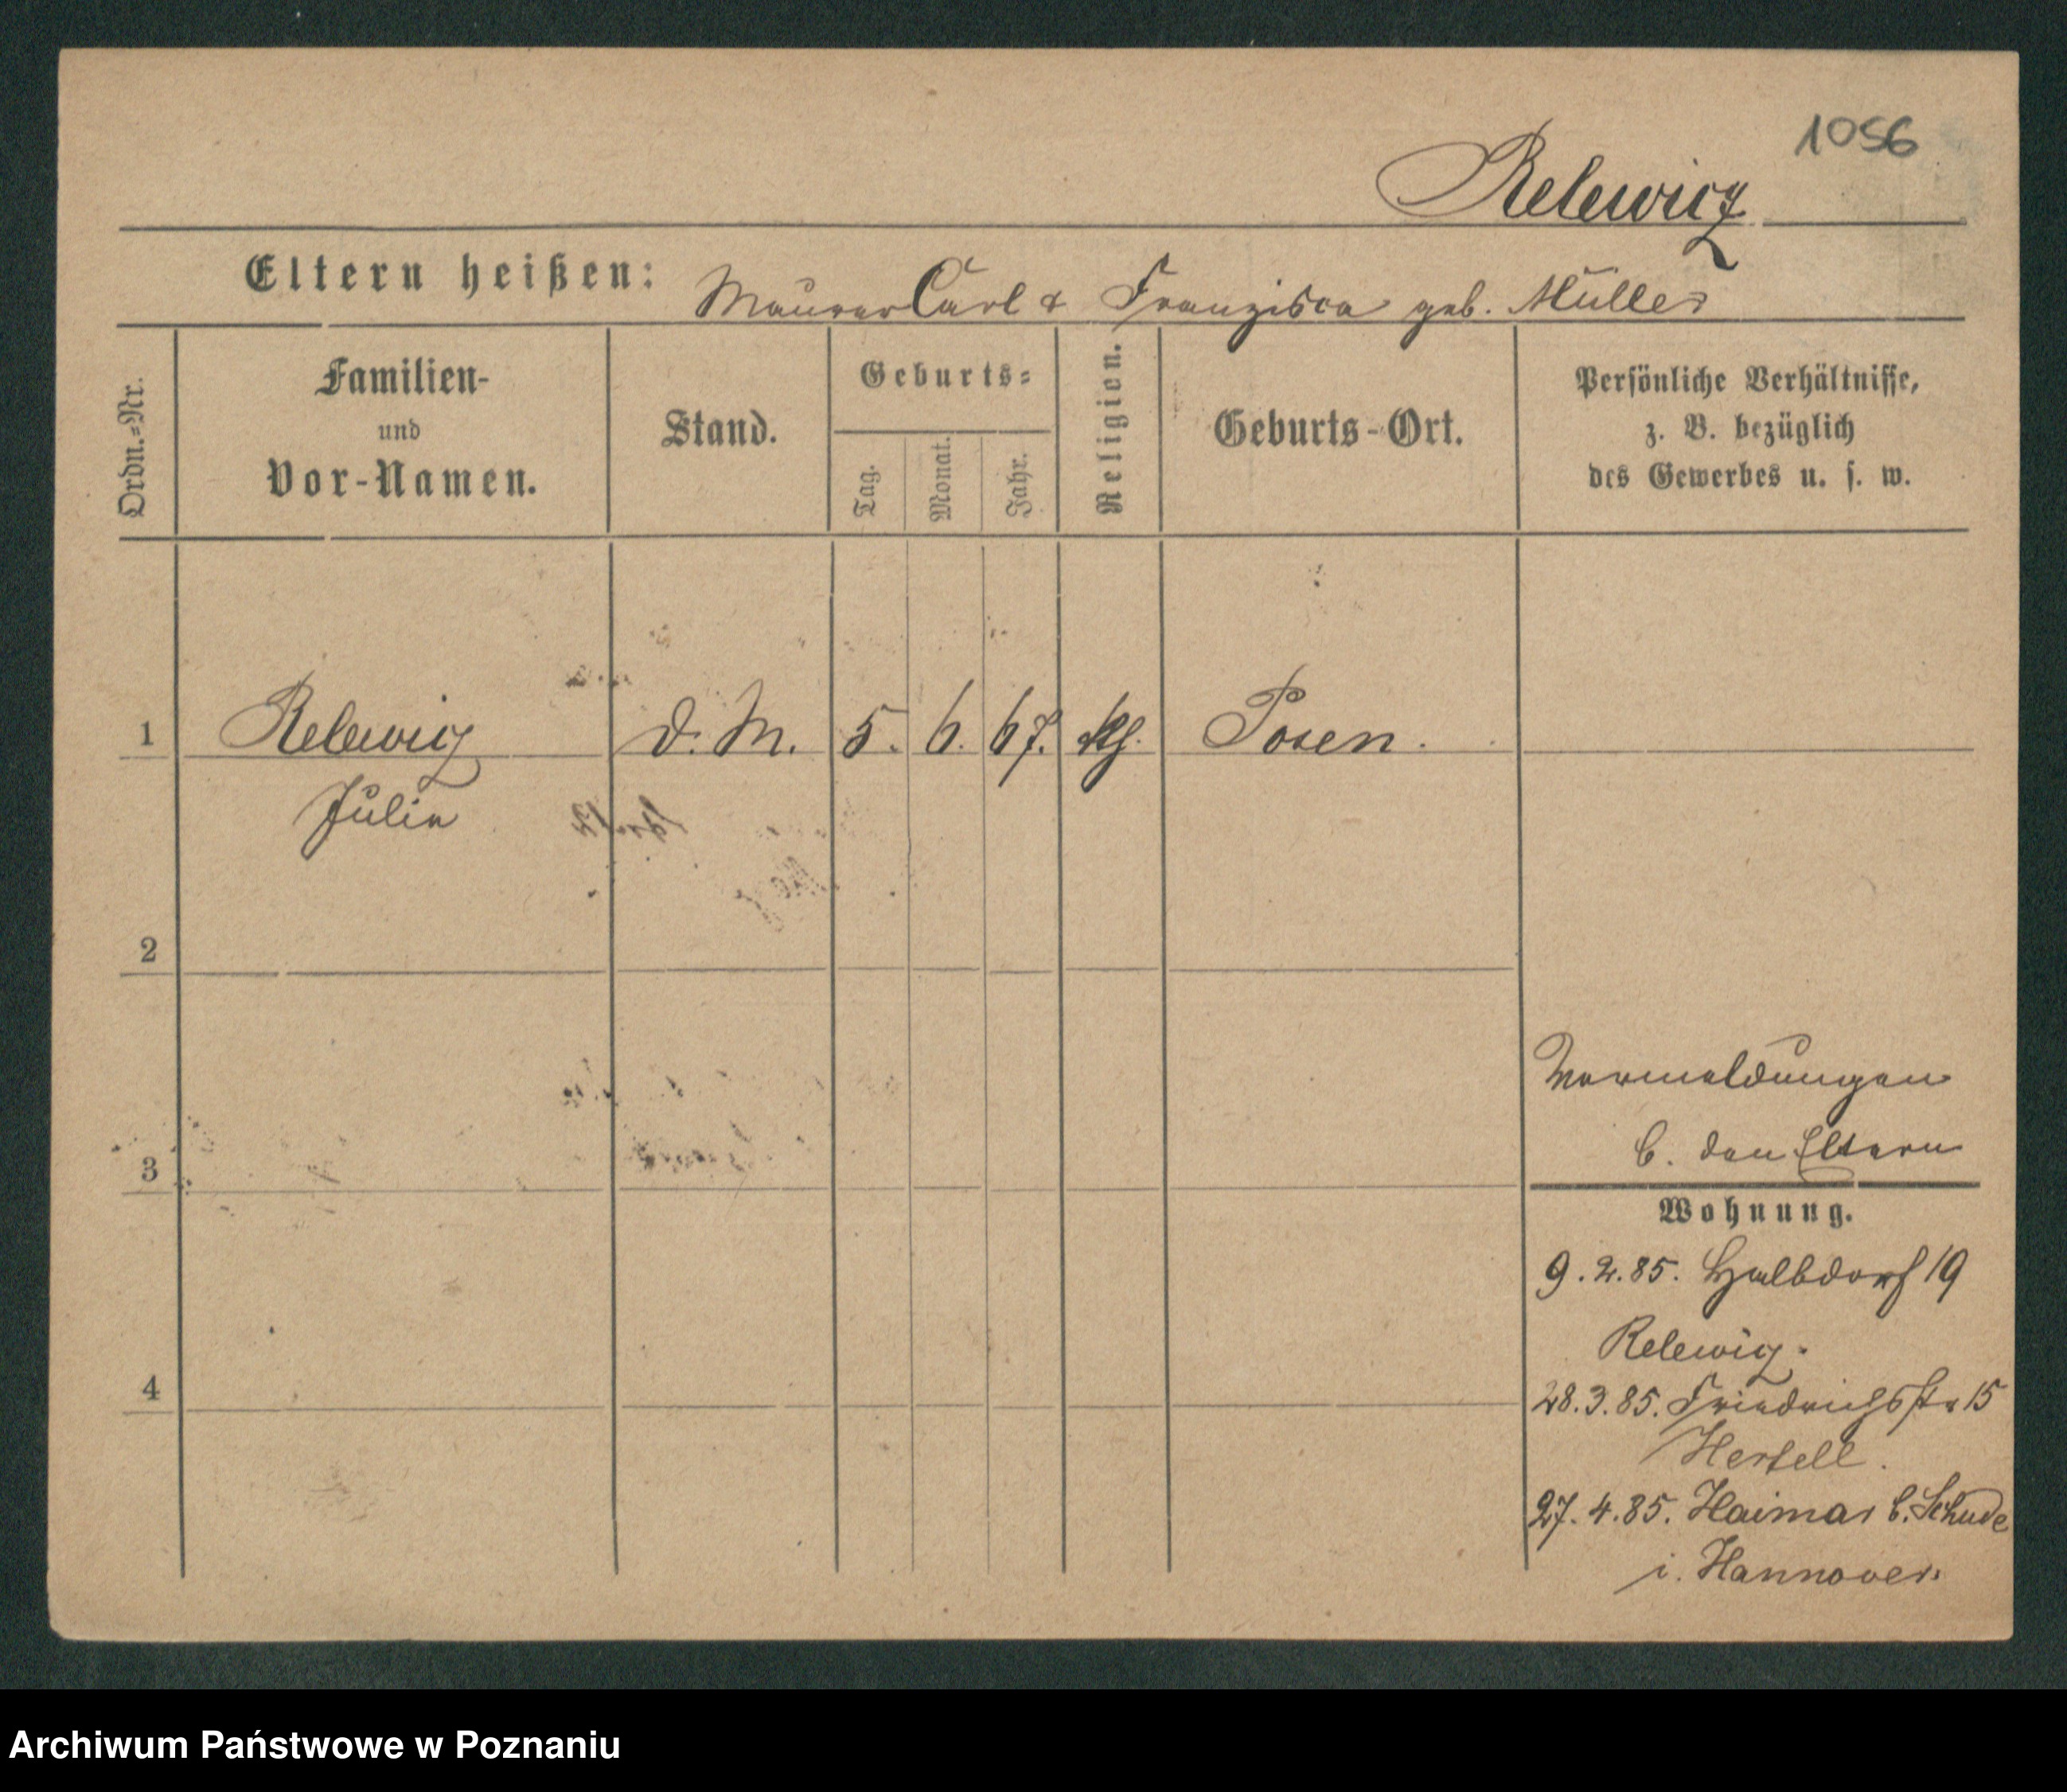 1056
Relewicz
Eltern heißen: Maurer Carl & Franzisca geb. Müller
Ordn.=Nr.
Familien-
und
Vor-Namen.
Stand.
Geburts=
Tag.
Monat.
Jahr.
Religion.
Geburts-Ort.
Persönliche Verhältnisse,
z. B. bezüglich
des Gewerbes u. s. w.
1 Relewicz d. M. 5. 6. 67. Posen.
Julie
2
3
4
Vormeldungen
b. den Eltern
Wohnung.
9.2.85. Halbdorf 19
Relewicz.
28.3.85. Friedrichsstr 15
Hertell.
27.4.85. Haimar b. Sehnde
i. Hannover.
Archiwum Państwowe w Poznaniu